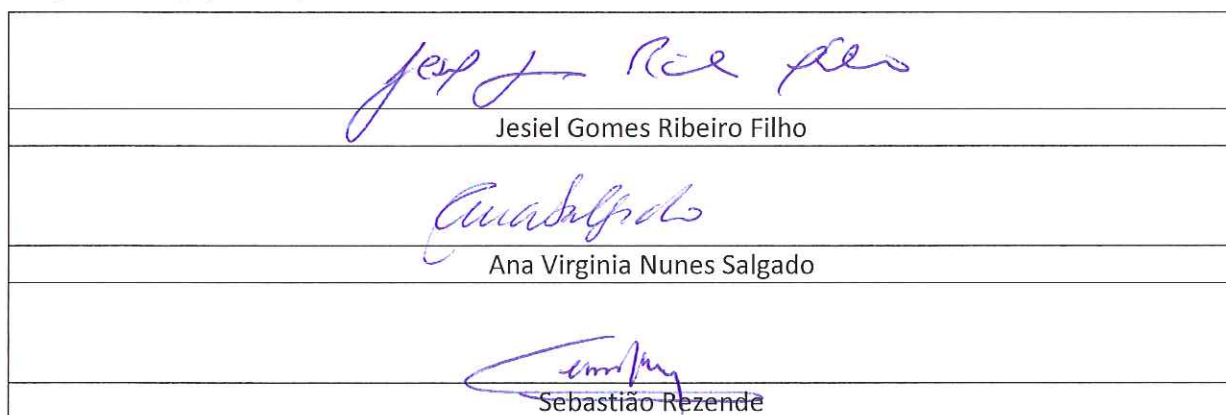 Jesiel Gomes Ribeiro Filho
AnaSalgado
Ana Virginia Nunes Salgado
Sebastião Rezende